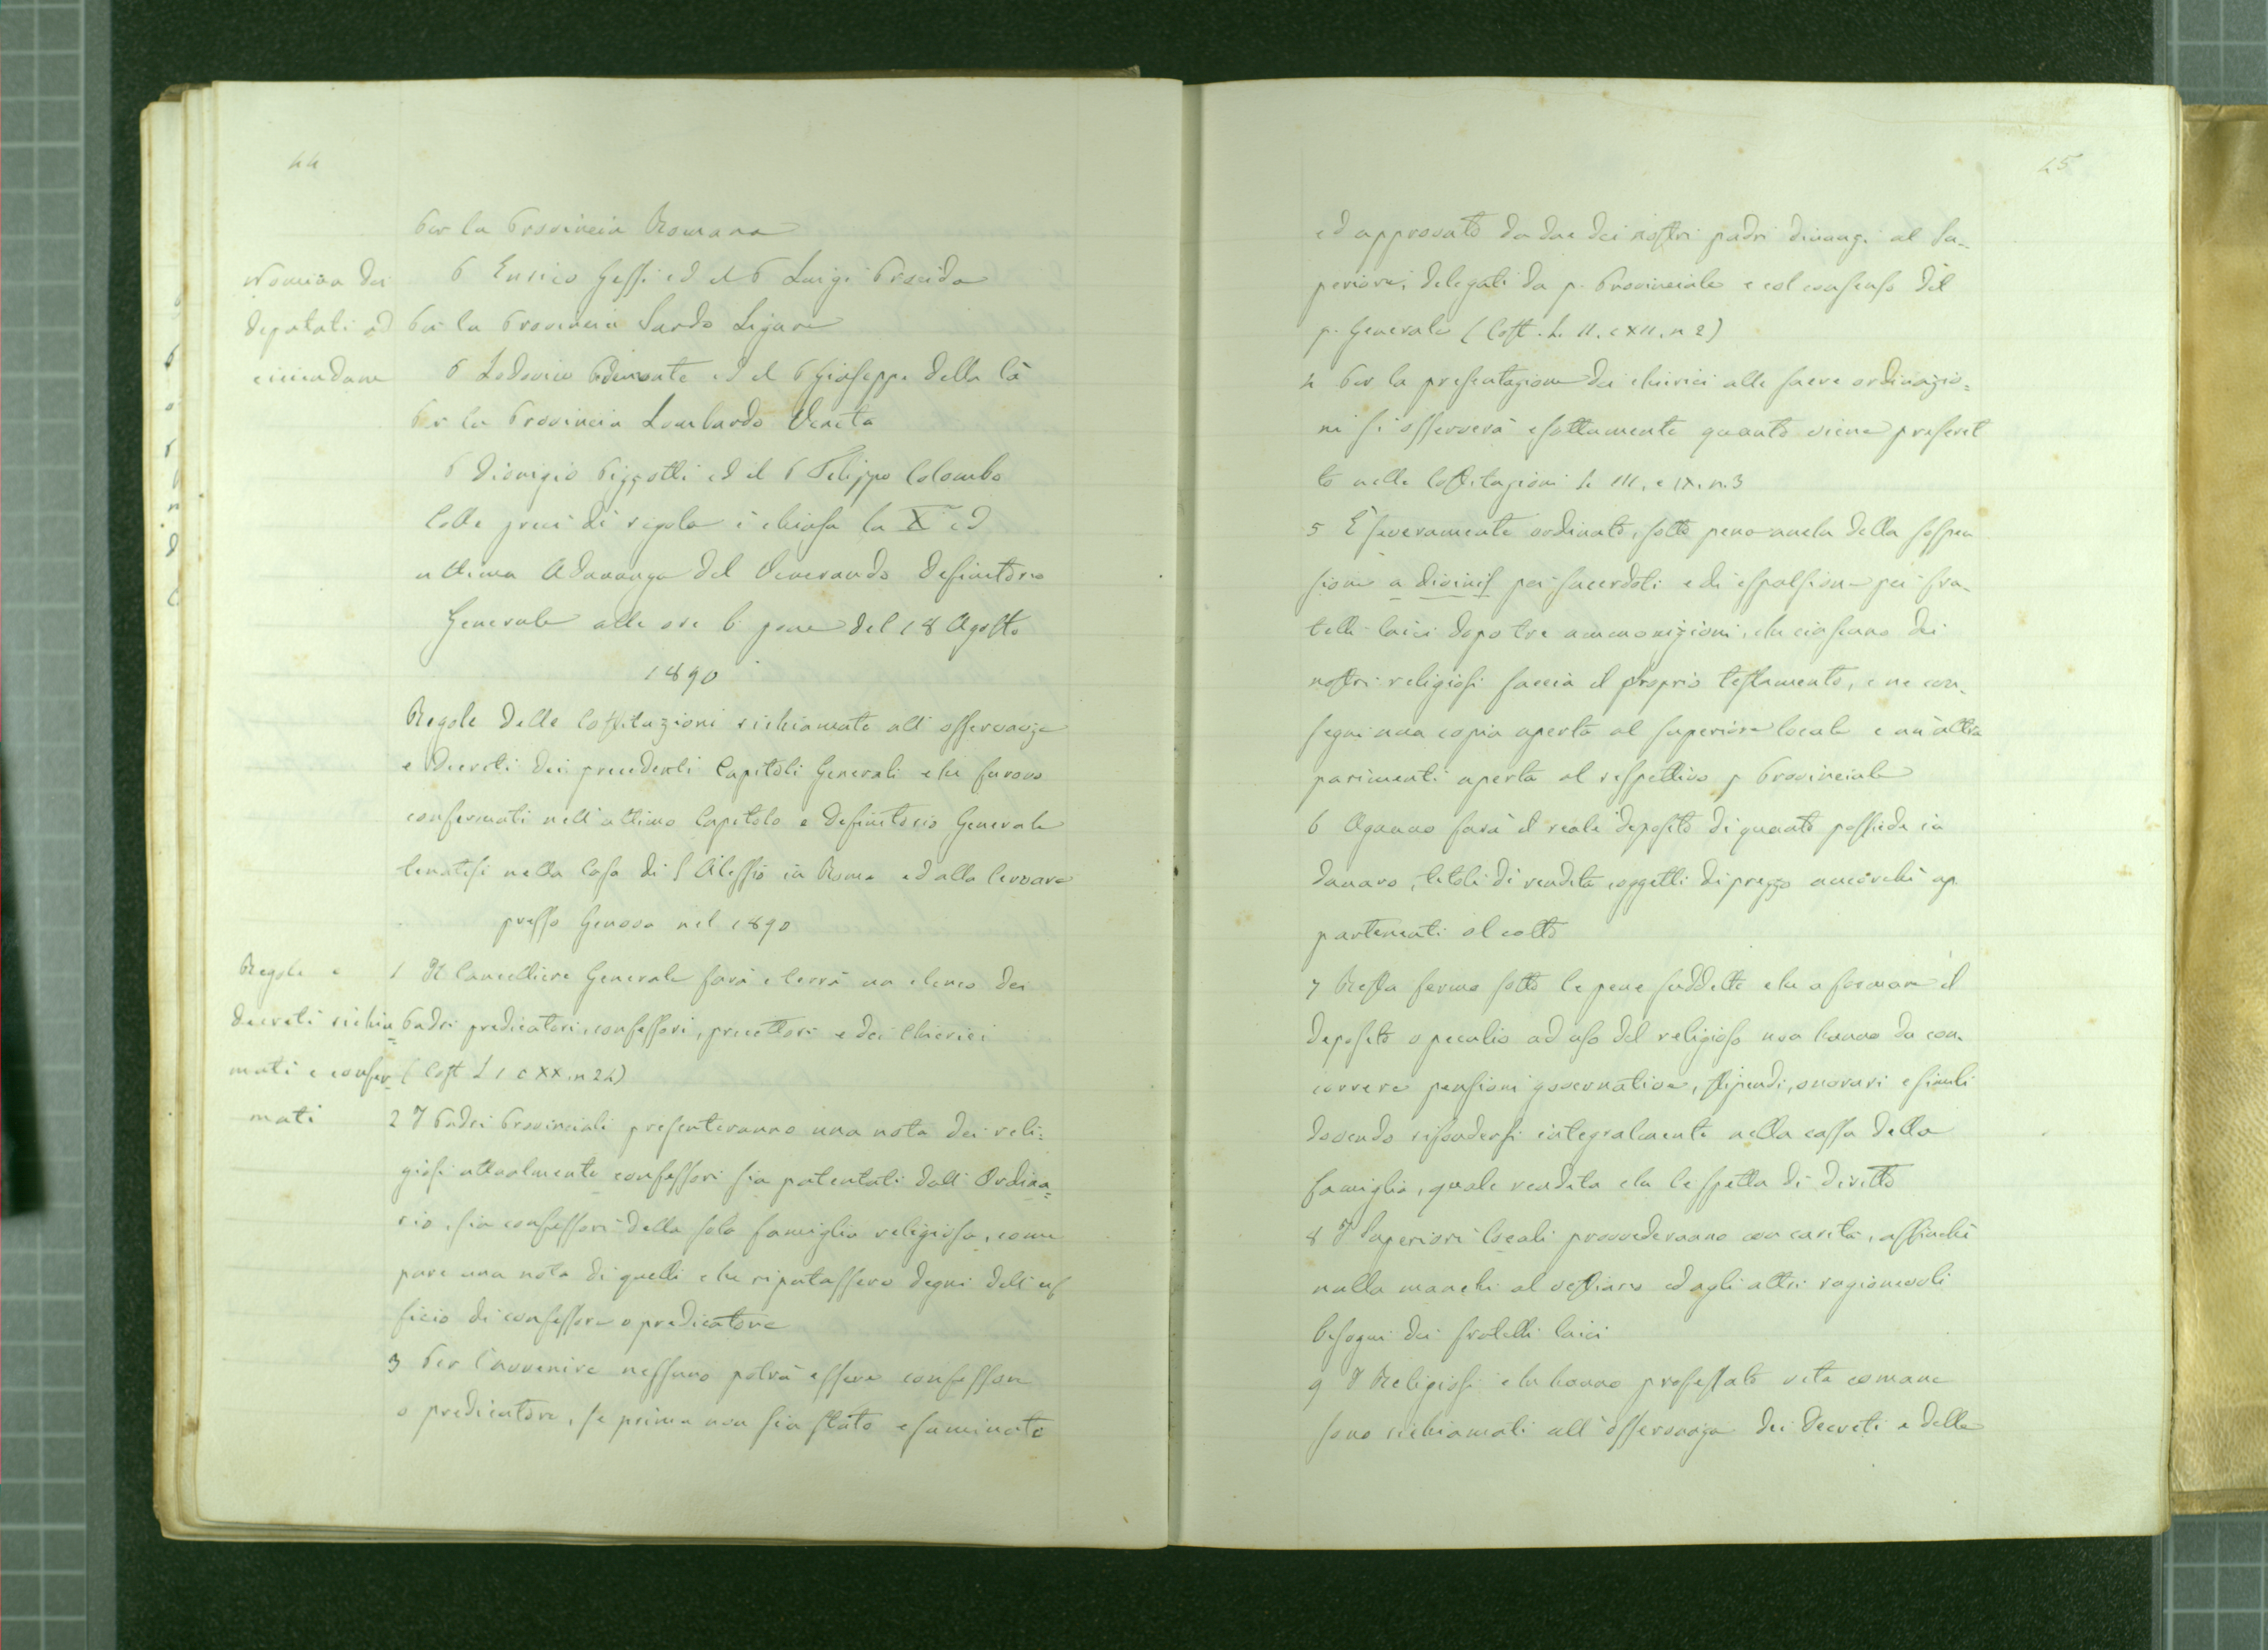 44
Per la Provincia Romana
Nomina dei
deputati ad
P Enrico Gessi ed il P Luigi Procida
Per la Provincia Sardo Ligure
P Lodovico ed il P Giuseppe della
Per la Provincia Lombardo Veneta
P Dionigio Pizzotti ed il P Filippo Colombo
Colle preci di regola è chiusa la X ed
ultima Adunanza del Venerando Definitorio
Generale alle ore 6 pom del 18 Agosto
1890
Regole delle Costituzioni richiamate all'osservanza
e decreti dei precedenti Capitoli Generali che furono
confermati nell'ultimo Capitolo e Definitorio Generale
tenutisi nella Casa di S Alessio in Roma ed alla Cervara
presso Genova nel 1890
Regole e
decreti richia=
mati e confer=
mati
1 Il Cancelliere Generale farà e terrà un elenco dei
Padri predicatori, confessori, precettori e dei Chierici
(Cost L 1 c XX, n 24)
2 I Padri Provinciali presenteranno una nota dei reli=
giosi attualmente confessori sia patentati dall'Ordina=
rio, sia confessori della sola famiglia religiosa, come
pure una nota di quelli che riputassero degni dell'uf
ficio di confessore o predicatore
3 Per l'avvenire nessuno potrà essere confessore
o predicatore, se prima non sia stato esaminato
45
ed approvato da due dei nostri padri dinanzi al Su-
periore, delegati da p. Provinciale e col consenso del
p. Generale (Cost. L. II. c XII. n 2)
4 Per la presentazione dei chierici alle sacre ordinazio=
ni si osserverà esattamente quanto viene prescrit
to nelle Costituzioni L III, c IX. n. 3
5 È severamente ordinato, sotto pena anche della sospen
sione a divinis pei sacerdoti e di espulsione pei fra-
telli laici dopo tre ammonizioni, che ciascuno dei
nostri religiosi faccia il proprio testamento, e ne con-
segni una copia aperta al superiore locale e un'altra
parimenti aperta al rispettivo p Provinciale
6 Ognuno farà il reale deposito di quanto possiede in
danaro, titoli di rendita, oggetti di prezzo ancorchè ap
partenenti al culto
7 Resta fermo sotto le pene suddette che a formare il
deposito o peculio ad uso del religioso non hanno da con-
correre pensioni governative, stipendi, onorari e simili
dovendo rifondersi integralmente nella cassa della
famiglia, quale rendita che le spetta di diritto
8 I Superiori locali provvederanno con carità, affinchè
nulla manchi al vestiario ed agli altri ragionevoli
bisogni dei fratelli laici
9 I Religiosi che hanno professato vita comune
sono richiamati all'osservanza dei Decreti e delle